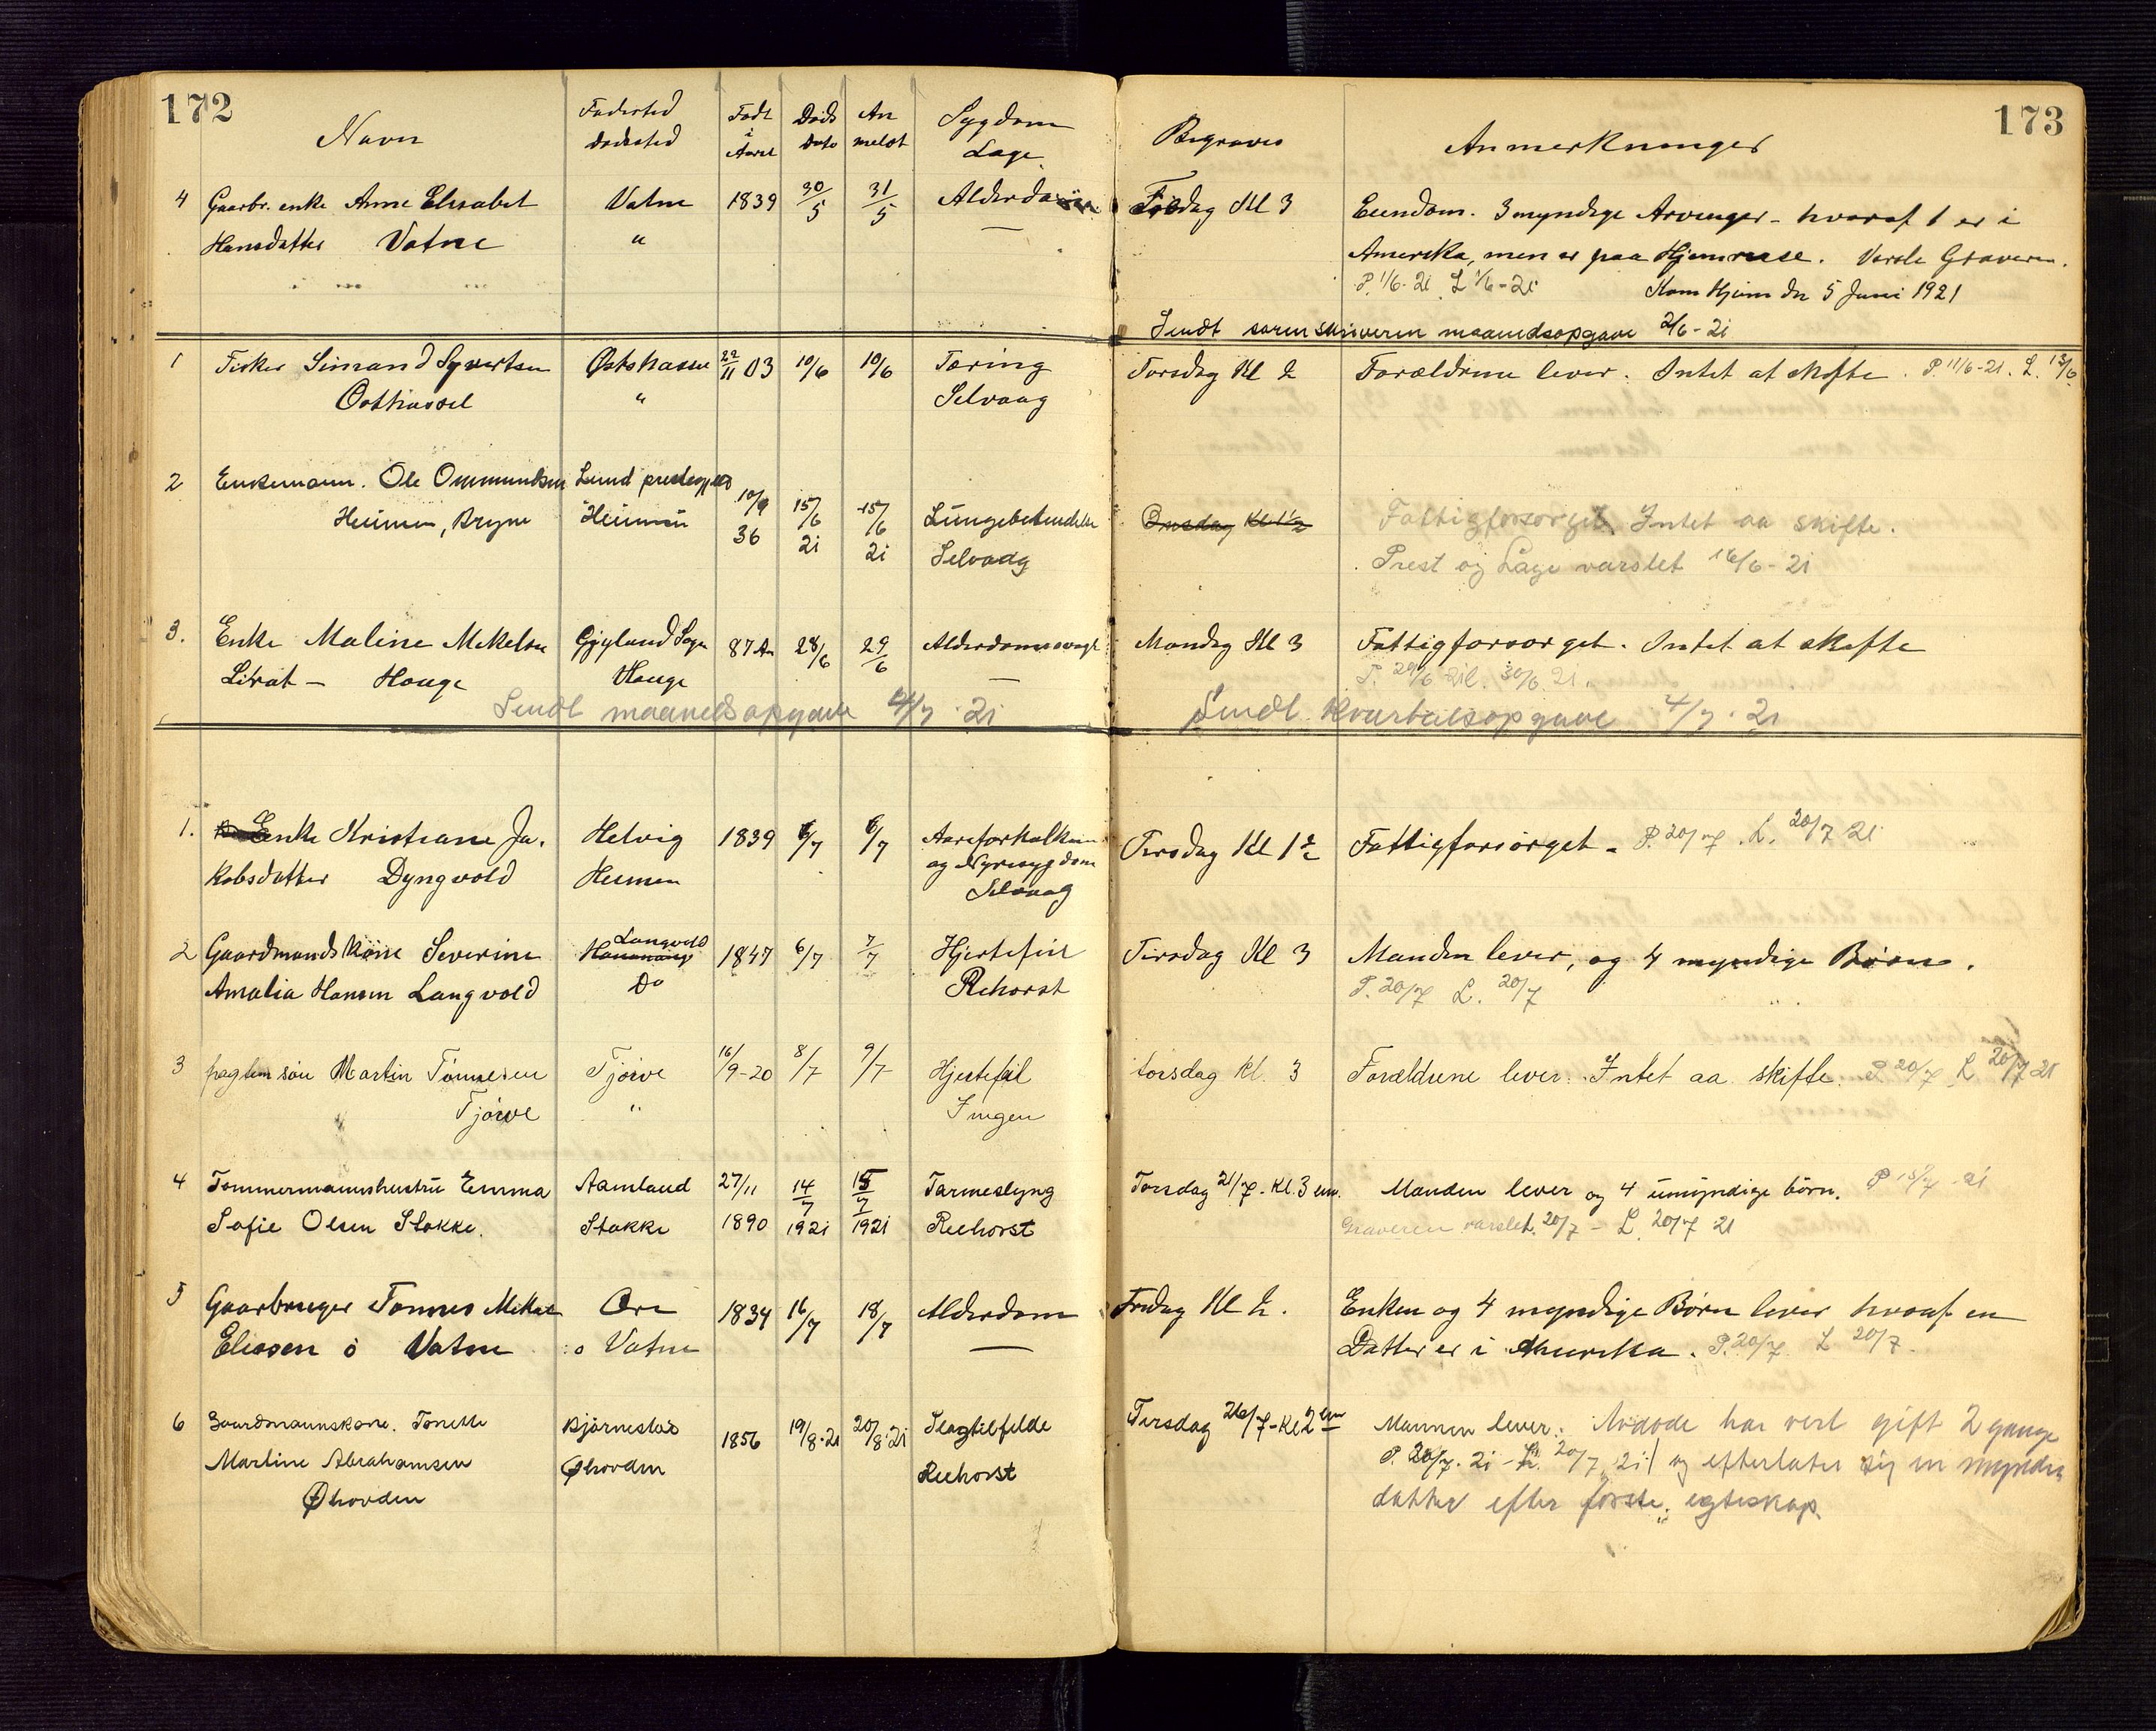 172
Navn
Fødested
Dødested
Født
i
Aaret
Døds
Dato
An
meldt
Sygdom
Læge
4 Gaarbr. enke Anne Elisabet Vatne 1839 30/5 31/5 Alderdom
Hansdatter Vatne " —
1 Fisker Simand Syvertsen Østhassel 22/11 03 10/6 10/6 Tæring
Østhassel " Selvaag
2 Enkemann. Ole Ommundsen Lund prestegjeld 10/9 36 15/6 21 15/6 21 Lungebetendelse
Heimen, Bryne Heimen Selvaag
3. Enke Maline Mikelsen Gyland Sogn 87 Aar 28/6 29/6 Alderdomssvaghet
Litrat — Hauge Hauge —
Sendt maanedsopgave 4/7 21
1. Enke Kristiane Ja- Helvig 1839 6/7 6/7 Aareforkalkning
kobsdatter Dyngvold Heimen og Nyresygdom
Selvaag
2 Gaardmandskone Severine Langvold 1847 6/7 7/7 Hjertefeil
Amalia Hansen Langvold Do Rehorst
3 søn Martin Tønnesen Tjørve 16/9-20 8/7 9/7 Hjertefeil
Tjørve " Ingen
4 Tømmermannshustru Emma Aamland 27/11 14/7 15/7 Tarmeslyng
Sofie Olsen Stokke. Stokke 1890 1921 1921 Reehorst
5 Gaarbruger Tønnes Mikal Øre 1834 16/7 18/7 Alderdom
Eliasen ø Vatne ø Vatne —
6 Gaardmannskone. Tonette Bjørnestad 1856 19/8.21 20/8.21 Slagtilfelde
Martine Abrahamsen Øhovden Reehorst
Øhovden
173
Begraves
Anmerkninger
Fredag Kl 3 Eiendom. 3 myndige Arvinger - hvoraf 1 er i
Amerika, men er paa Hjemreise. Varsle Graveren.
P. 1/6-21 L 1/6-21 Kom Hjem den 5 Juni 1921
Sendt sorenskriveren maanedsopgave 2/6-21
Torsdag Kl 2 Forældrene lever. Intet at skifte. P. 11/6-21. L. 12/6
Onsdag Kl 1½ Fattigforsørget. Intet aa skifte.
Prest og Læge varslet 16/6-21
Mandag Kl 3 Fattigforsørget. Intet at skifte
P. 29/6 21 L. 30/6 21.
Sendt kvartalsopgave 4/7.21
Tirsdag Kl 1½ Fattigforsørget - P. 20/7. L. 20/7 21
Tirsdag Kl 3 Manden lever, og 4 myndige Børn.
P. 20/7 L. 20/7
torsdag kl. 3 Forældrene lever. Intet aa skifte. P 20/7 L 20/7 21
Torsdag 21/7. kl. 3 em. Manden lever og 4 umyndige børn. P 15/7-21
Graveren varslet. 20/7 - L. 20/7 21
Fredag Kl 2. Enken og 4 myndige Børn lever hvoraf en
Datter er i Amerika. P. 20/7. L 20/7.
Tirsdag 26/7-Kl 2 em Mannen lever. Avdøde har vert gift 2 gange
P. 20/7. 21 - L. 20/7 21 | og efterlater sig en myndig
datter efter første egteskap.